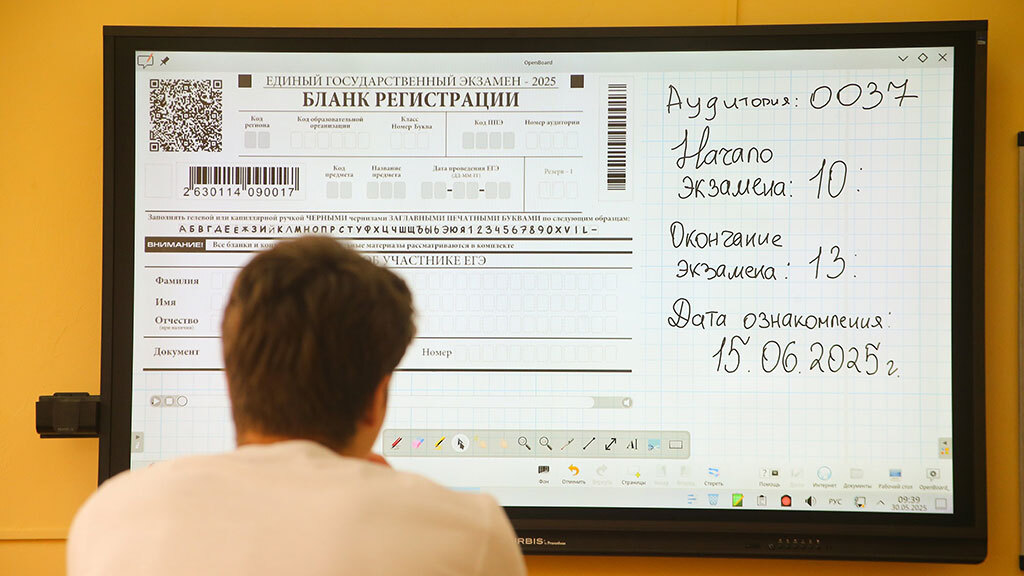 OpenBoard
ЕДИНЫЙ ГОСУДАРСТВЕННЫЙ ЭКЗАМЕН - 2025
БЛАНК РЕГИСТРАЦИИ
Код региона
Код образовательной организации
Класс Номер Буква
Код ППЭ
Номер аудитории
2 630114 090017
Код предмета
Название предмета
Дата проведения ЕГЭ (ДД-ММ-ГГ)
Резерв - 1
Заполнять гелевой или капиллярной ручкой ЧЕРНЫМИ чернилами ЗАГЛАВНЫМИ ПЕЧАТНЫМИ БУКВАМИ по следующим образцам:
АБВГДЕЁЖЗИЙКЛМНОПРСТУФХЦЧШЩЪЫЬЭЮЯ1234567890XVIL-
ВНИМАНИЕ! Все бланки и материалы рассматриваются в комплекте
ОБ УЧАСТНИКЕ ЕГЭ
Фамилия
Имя
Отчество
(при наличии)
Документ
Номер
Аудитория: 0037
Начало
экзамена: 10:
Окончание
экзамена: 13:
Дата ознакомления:
15.06.2025г.
Фон
Отменить
Вернуть
Страницы
Назад
Вперед
Стереть
Помощь
Интернет
Документы
Рабочий стол
OpenBoard
РУС
09:39
30.05.2025